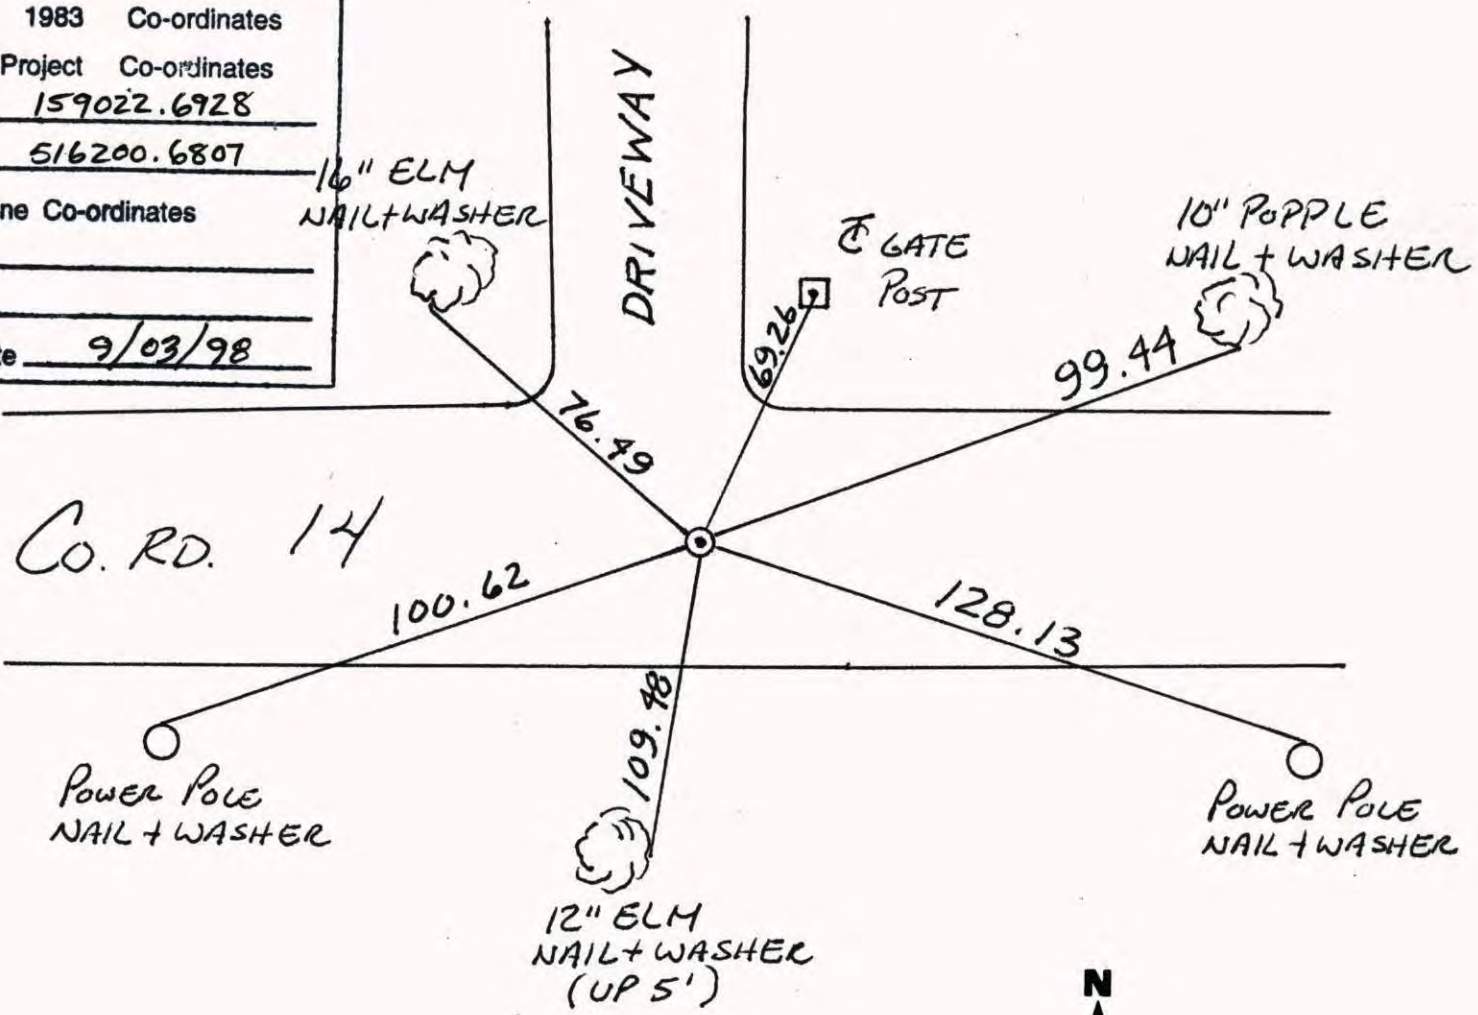 1983 Co-ordinates
Project Co-ordinates
159022.6928
516200.6807
ne Co-ordinates
te 9/03/98
16" ELM
NAIL+WASHER
DRIVEWAY
℄ GATE
POST
10" POPPLE
NAIL + WASHER
69.26
99.44
76.49
Co. RD. 14
100.62
128.13
109.48
POWER POLE
NAIL + WASHER
POWER POLE
NAIL + WASHER
12" ELM
NAIL + WASHER
(UP 5')
N